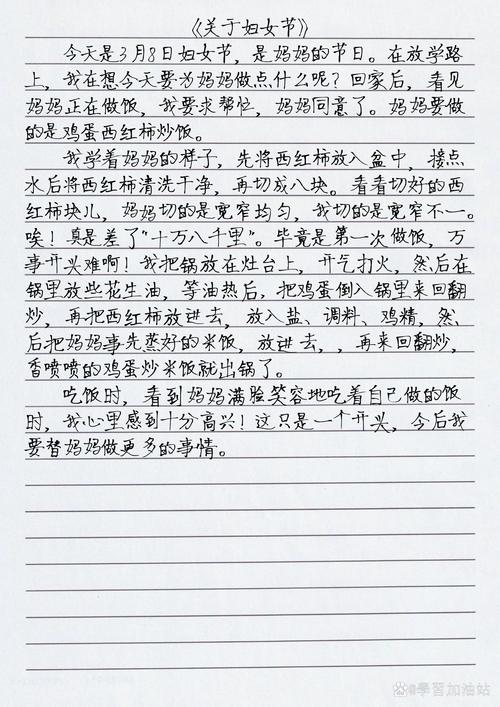 《关于妇女节》
今天是3月8日妇女节，是妈妈的节日。在放学路
上，我在想今天要为妈妈做点什么呢？回家后，看见
妈妈正在做饭，我要求帮忙，妈妈同意了。妈妈要做
的是鸡蛋西红柿炒饭。
我学着妈妈的样子，先将西红柿放入盆中，接点
水后将西红柿清洗干净，再切成八块。看看切好的西
红柿块儿，妈妈切的是宽窄均匀，我切的是宽窄不一。
唉！真是差了“十万八千里”。毕竟是第一次做饭，万
事开头难啊！我把锅放在灶台上，开气打火，然后在
锅里放些花生油，等油热后，把鸡蛋倒入锅里来回翻
炒，再把西红柿放进去，放入盐、调料、鸡精，然
后把妈妈事先蒸好的米饭，放进去，，再来回翻炒，
香喷喷的鸡蛋炒米饭就出锅了。
吃饭时，看到妈妈满脸笑容地吃着自己做的饭
时，我心里感到十分高兴！这只是一个开头，今后我
要替妈妈做更多的事情。
學習加油站